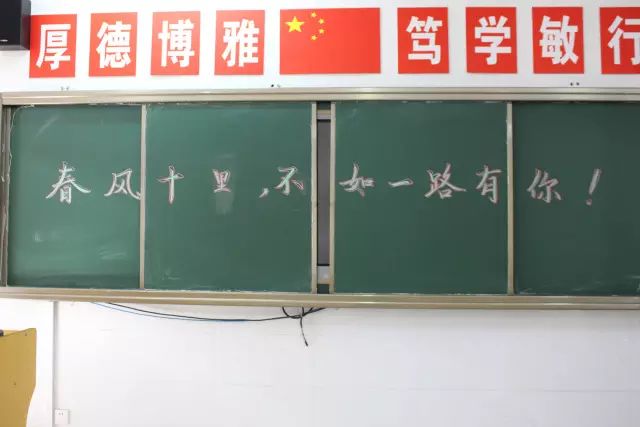 厚德博雅 笃学敏行
春风十里,不如一路有你!